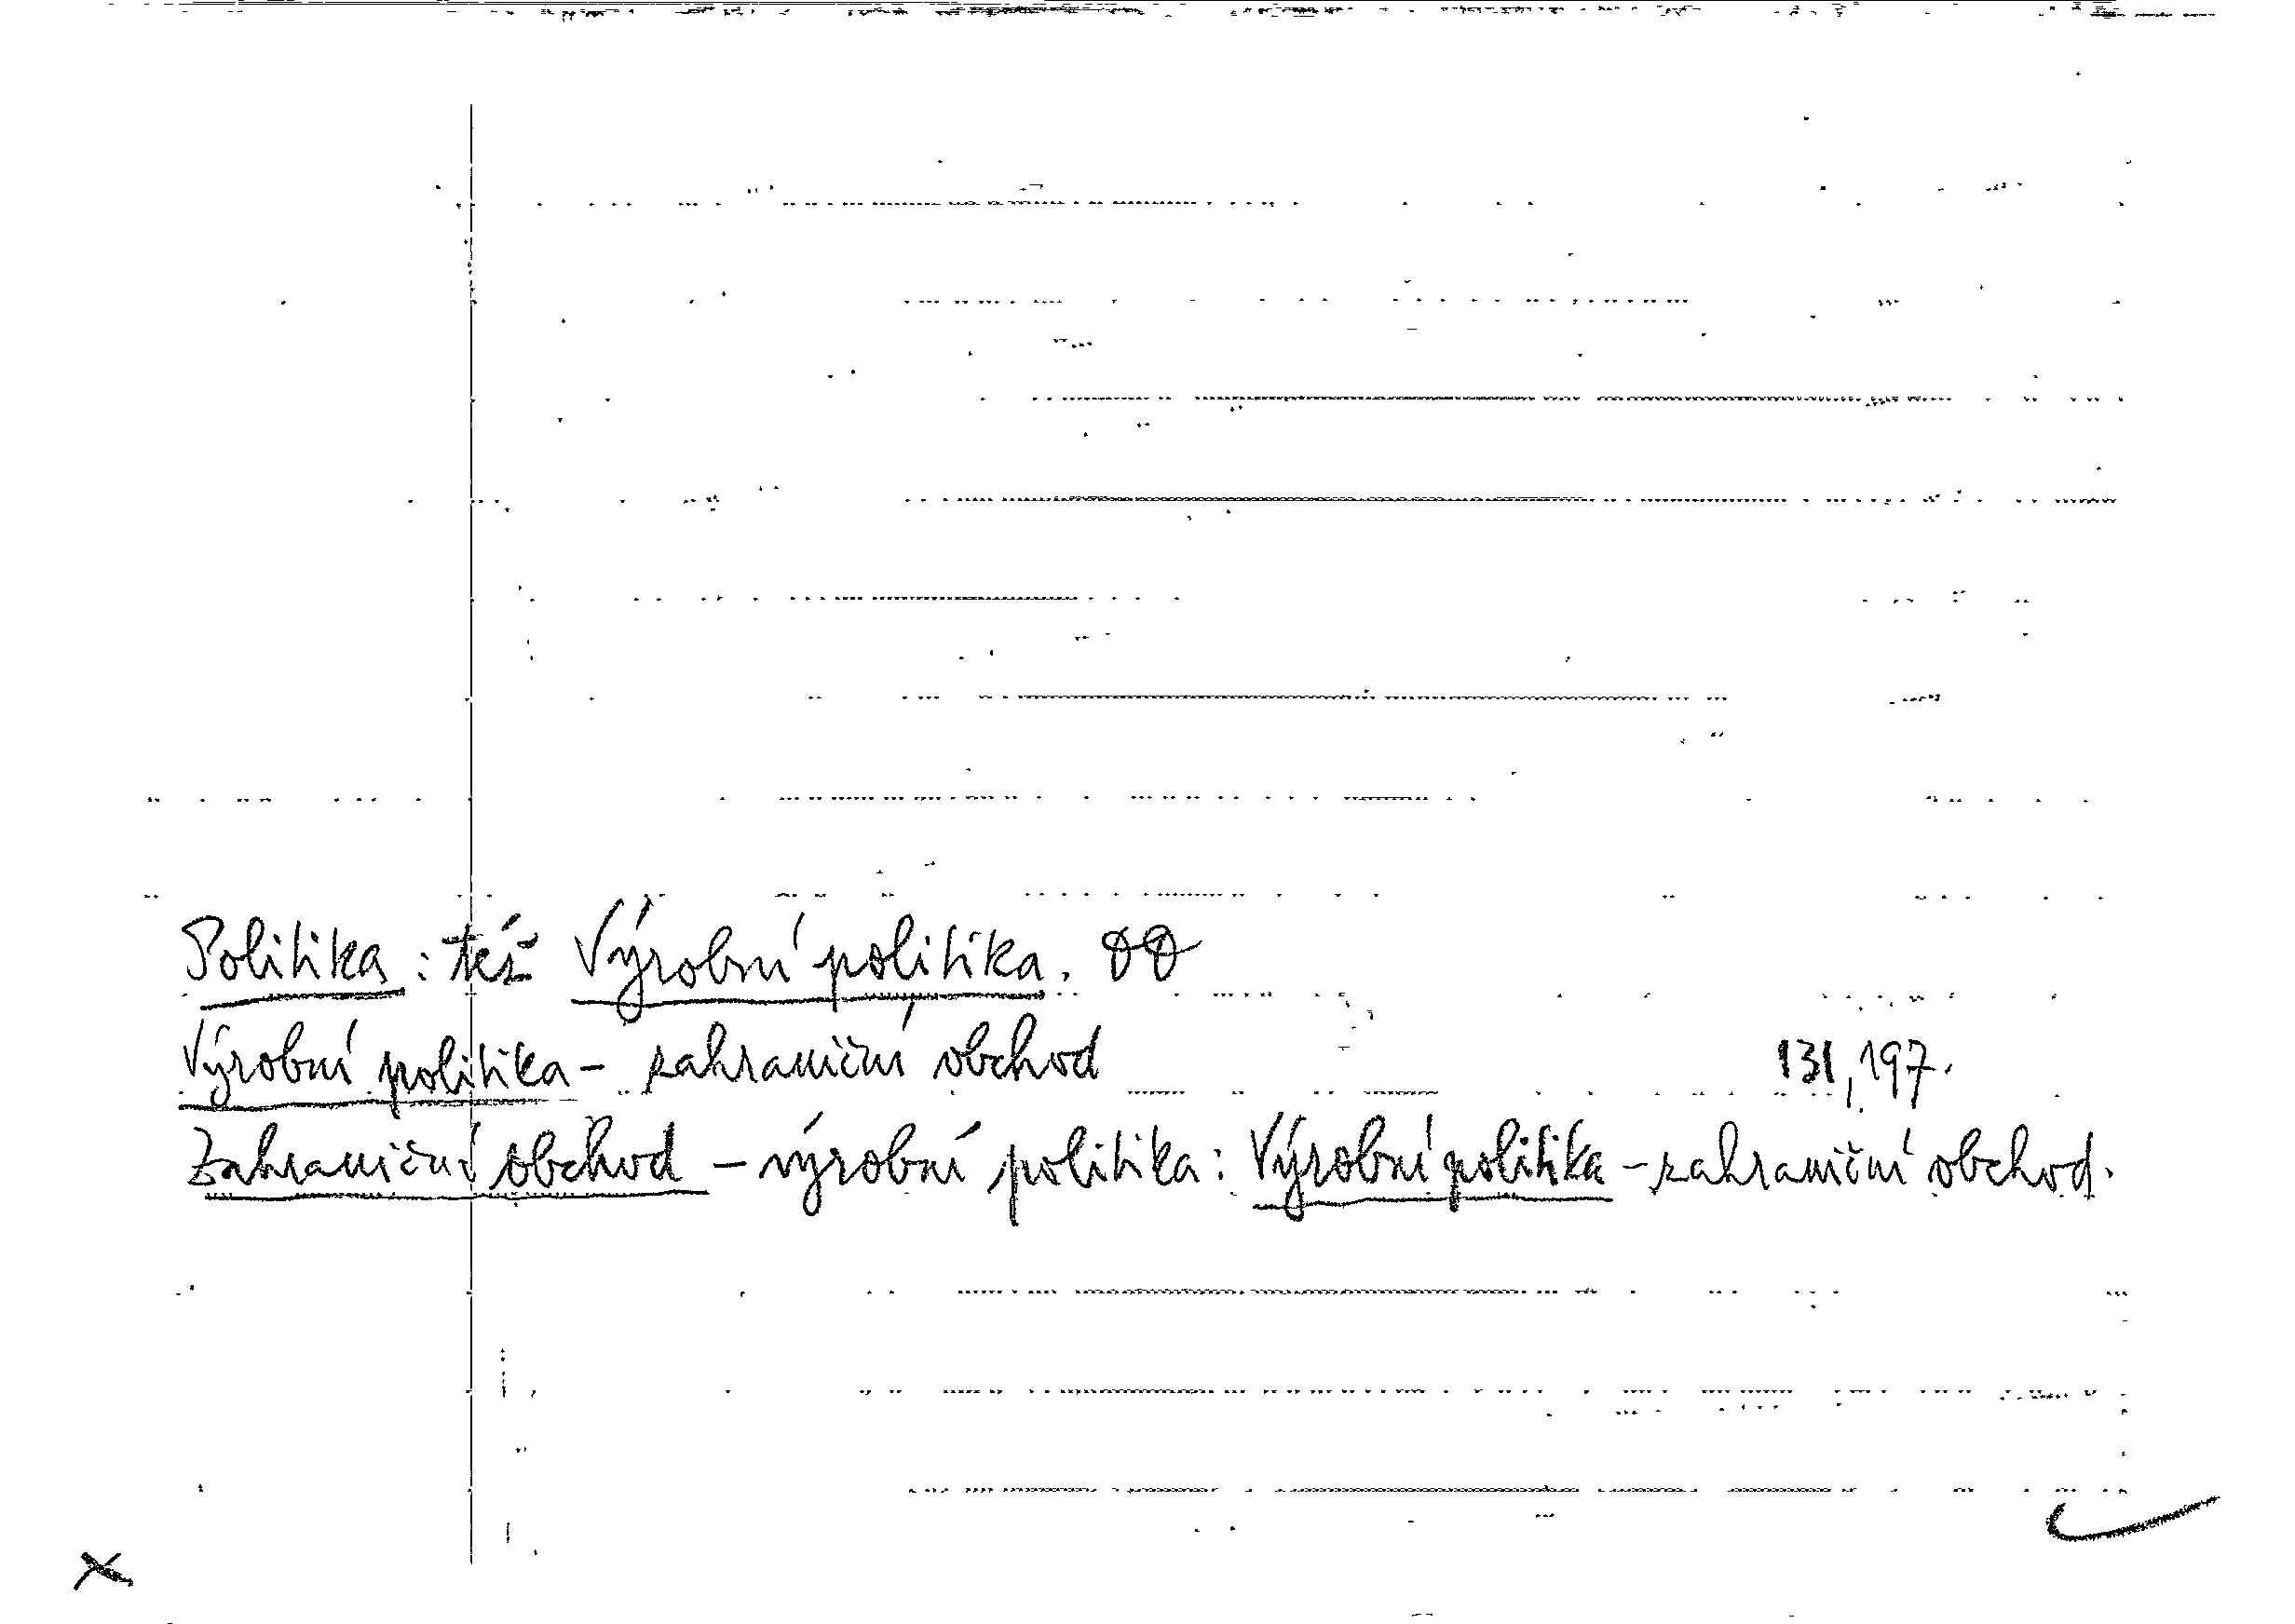 Politika: též Výrobní politika.
Výrobní politika – zahraniční obchod 131, 197.
Zahraniční obchod – výrobní politika: Výrobní politika – zahraniční obchod.